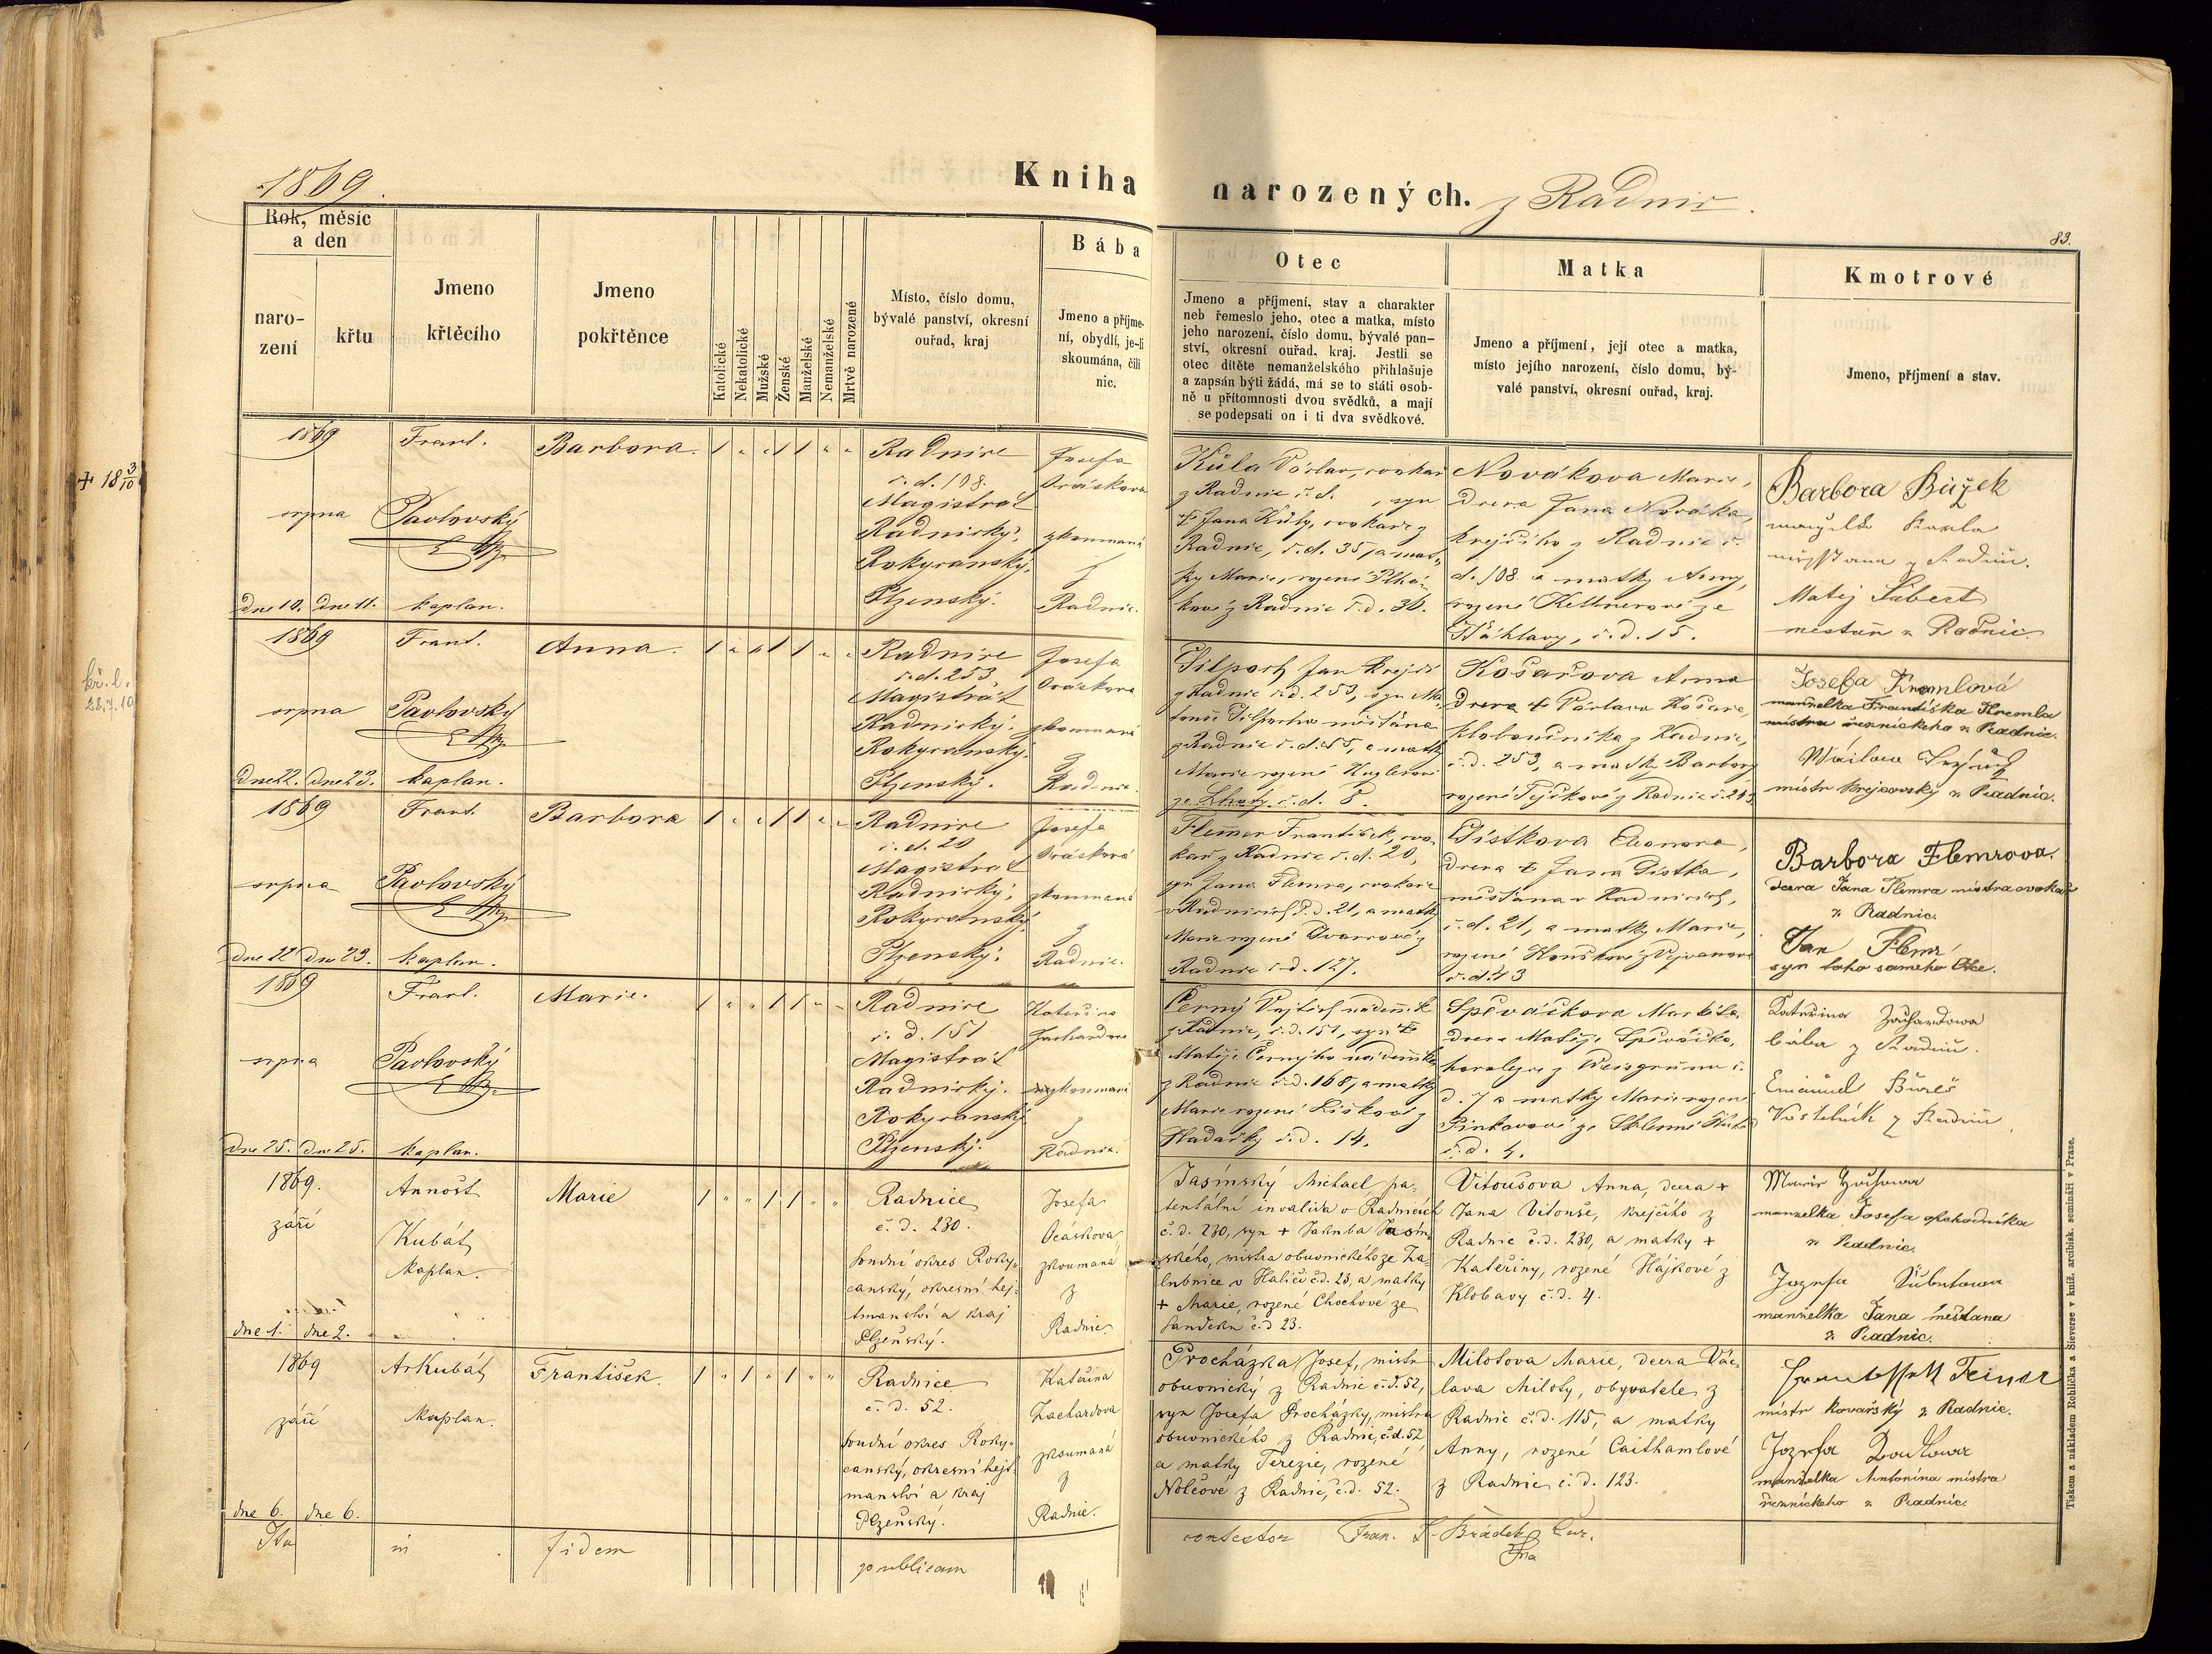 1869.
Kniha narozených. z Radnic.
83.
Rok, měsíc
a den
naro-
zení
křtu
Jmeno
křtěcího
Jmeno
pokřtěnce
Katolické
Nekatolické
Mužské
Ženské
Manželské
Nemanželské
Mrtvě narozené
Místo, číslo domu,
bývalé panství, okresní
ouřad, kraj
Bába
Jmeno a příjme-
ní, obydlí, je-li
skoumána, čili
nic.
Otec
Jmeno a příjmení, stav a charakter
neb řemeslo jeho, otec a matka, místo
jeho narození, číslo domu, bývalé pan-
ství, okresní ouřad, kraj. Jestli se
otec dítěte nemanželského přihlašuje
a zapsán býti žádá, má se to státi osob-
ně u přítomnosti dvou svědků, a mají
se podepsati on i ti dva svědkové.
Matka
Jmeno a příjmení, její otec a matka,
místo jejího narození, číslo domu, bý-
valé panství, okresní ouřad, kraj.
Kmotrové
Jmeno, příjmení a stav.
1869
srpna
dne 10. dne 11.
Frant.
Pavlovský
kaplan.
Barbora.
Radnice
č. d. 108.
Magistrát
Radnický,
Rokycanský,
Plzenský.
Josefa
zkoumaná
z
Radnic.
Kůla Václav, cvokař
z Radnic č. d. , syn
† Jana Kůly, cvokaře z
Radnic, č. d. 35, a mat-
ky Marie, rozené
z Radnic č. d. 36.
Nováková Marie,
dcera Jana Nováka,
krejčího z Radnic č.
d. 108 a matky Anny,
rozené Kellnerové ze
Šťáhlavy, č. d. 15.
Barbora Bužek
Matěj Šubert
mestan z Radnic.
1869
srpna
dne 22. dne 23.
Frant.
Pavlovský
kaplan.
Anna.
Radnice
č. d. 253
Magistrát
Radnický
Rokycanský,
Plzenský.
Josefa
zkoumaná
z
Radnic.
Jan krejčí
z Radnic č. d. 253, syn Ma-
z Radnic č. d. 55, a matky
Marie rozené Kuglerové
ze Lhoty č. d. 8.
Košařova Anna
dcera † Václava Košaře,
kloboučníka z Radnic,
č. d. 253, a matky Barbory
Josefa Kremlová
manželka Františka Kremla
mistra řeznickeho z Radnic.
mistr krejčovský z Radnic.
1869
srpna
dne 22 dne 23.
Frant.
Pavlovský
kaplan.
Barbora
Radnice
č. d. 20
Magistrát
Radnický,
Rokycanský,
Plzenský.
Josefa
zkoumaná
z
Radnic.
Flemer František, cvo-
kař z Radnic č. d. 20,
syn Jana Flemra, cvokaře
v Radnicích č. d. 21, a matky
Marie rozené
Radnic č. d. 127.
Eleonora,
dcera † Jana
měšťana v Radnicích,
č. d. 21, a matky Marie,
č. d. 43
Barbora Flemrova.
dcera Jana Flemra mistra cvokař
z Radnic.
Jan Flemr
syn toho sameho Otce.
1869
srpna
dne 25. dne 25.
Frant.
Pavlovský
kaplan.
Marie.
Radnice
č. d. 151
Magistrát
Radnický.
Rokycanský
Plzenský.
Kateřina
Zachardova
zkoumaná
z
Radnic.
Černý Vojtěch nádenník
z Radnic, č. d. 151, syn †
Matěje Černýho nádenníka
z Radnic č. d. 168, a matky
Marie rozené Liškové z
Hadačky č. d. 14.
Spěváčkova Markéta,
dcera Matěje Spěváčka,
havlýře z Weisgrünu č.
d. 7 a matky Marie rozené
Pinkasové ze Sklenné Hutě
č. d. 4.
Kateřina Zachardowa
bába z Radnic.
Emanuel Bureš
Kostelník z Radnic.
1869.
září
dne 1. dne 2.
Arnošt
Kubát
kaplan.
Marie
Radnice
č. d. 230.
soudní okres Roky-
canský, okresní hej-
tmanství a kraj
Plzeňský.
Josefa
Ocáskova
zkoumaná
z
Radnic
Jasínský Michael pa-
tentální invalida v Radnicích
č. d. 230, syn † Jakuba Jasín-
ského, mistra obuvnického ze Za-
lubnice v Haliči č. d. 23, a matky
† Marie, rozené Chochové ze
Sandcku č. d 23.
Vitoušova Anna, dcera †
Jana Vitouše, krejčího z
Radnic č. d. 230, a matky †
Kateřiny, rozené Hájkové z
Klobavy č. d. 4.
manzelka Josefa obchodníka
z Radnic.
Jozefa Šubrtowa
manželka Jana meštana
z Radnic.
1869
září
dne 6. dne 6.
Ar Kubát
kaplan.
František.
Radnice
č. d. 52.
soudní okres Roky-
canský, okresní hejt-
manství a kraj
Plzeňský.
Kateřina
Zachardova
zkoumaná
z
Radnic.
Procházka Josef, mistr
obuvnický z Radnic č. d. 52,
syn Josefa Procházky, mistra
obuvnického z Radnic, č. d. 52
a matky Terezie, rozené
Nolčové z Radnic, č. d. 52.
Milotova Marie, dcera Vác-
lava Miloty, obyvatele z
Radnic č. d. 115, a matky
Anny, rozené Caithamlové
z Radnic č. d. 123.
mistr kovařský z Radnic.
Jozefa
manželka Antonína mistra
řeznického z Radnic.
Ita in fidem publicam contestor Fran. S. Hrádek
Tiskem a nákladem Rohlíčka a Sieverse v kníž. arcibisk. semináři v Praze.